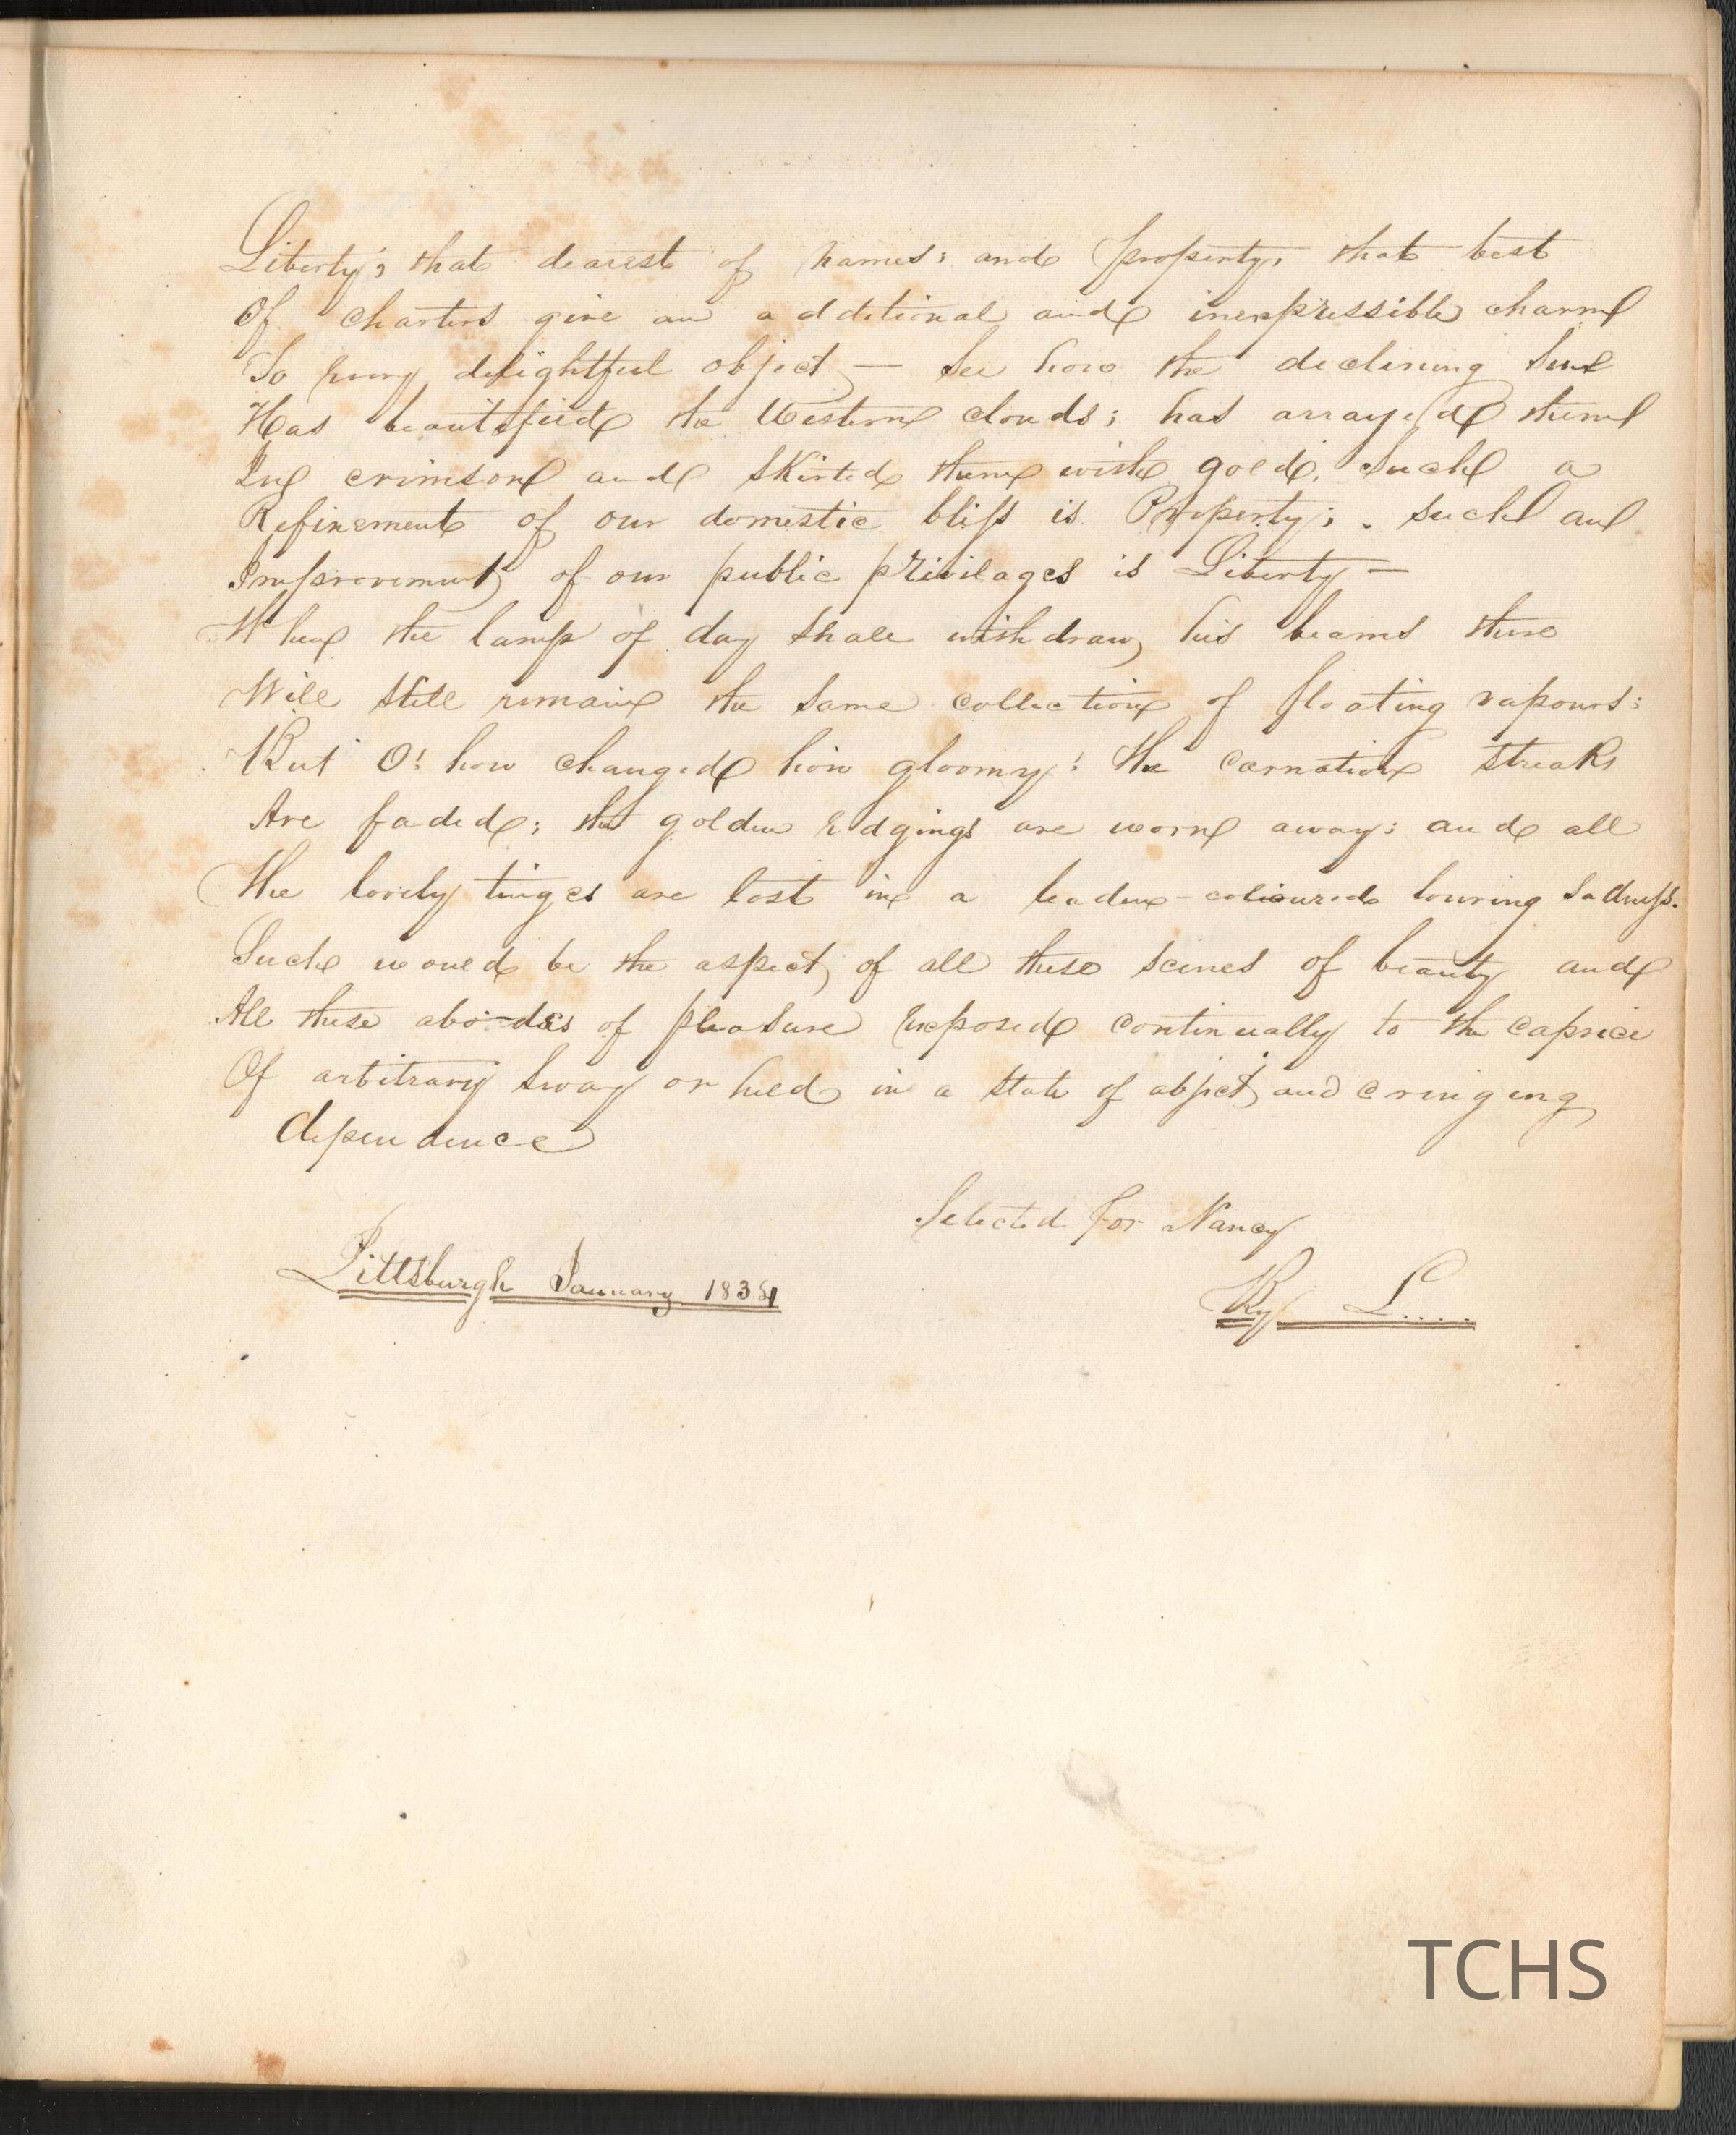 Liberty; that dearest of names; and property, that best
Of charters give an additional and inexpressible charm
To every delightful object — See how the declining Sun
Has beautified the Western clouds; has arrayed them
In crimson and skirted them with gold. Such a
Refinement of our domestic bliss is Property; such an
Improvement of our public privilages is Liberty —
When the lamp of day shall withdraw his beams there
Will still remain the same collection of floating vapours:
But O! how changed how gloomy! the carnation streaks
Are faded; the golden edgings are worn away; and all
The lovely tinges are lost in a leaden-coloured louring sadness.
Such would be the aspect of all these scenes of beauty and
All these abodes of pleasure exposed continually to the caprice
Of arbitrary sway or held in a state of abject and cringing
dependence
Selected for Nancy
Pittsburgh January
By L.....
TCHS